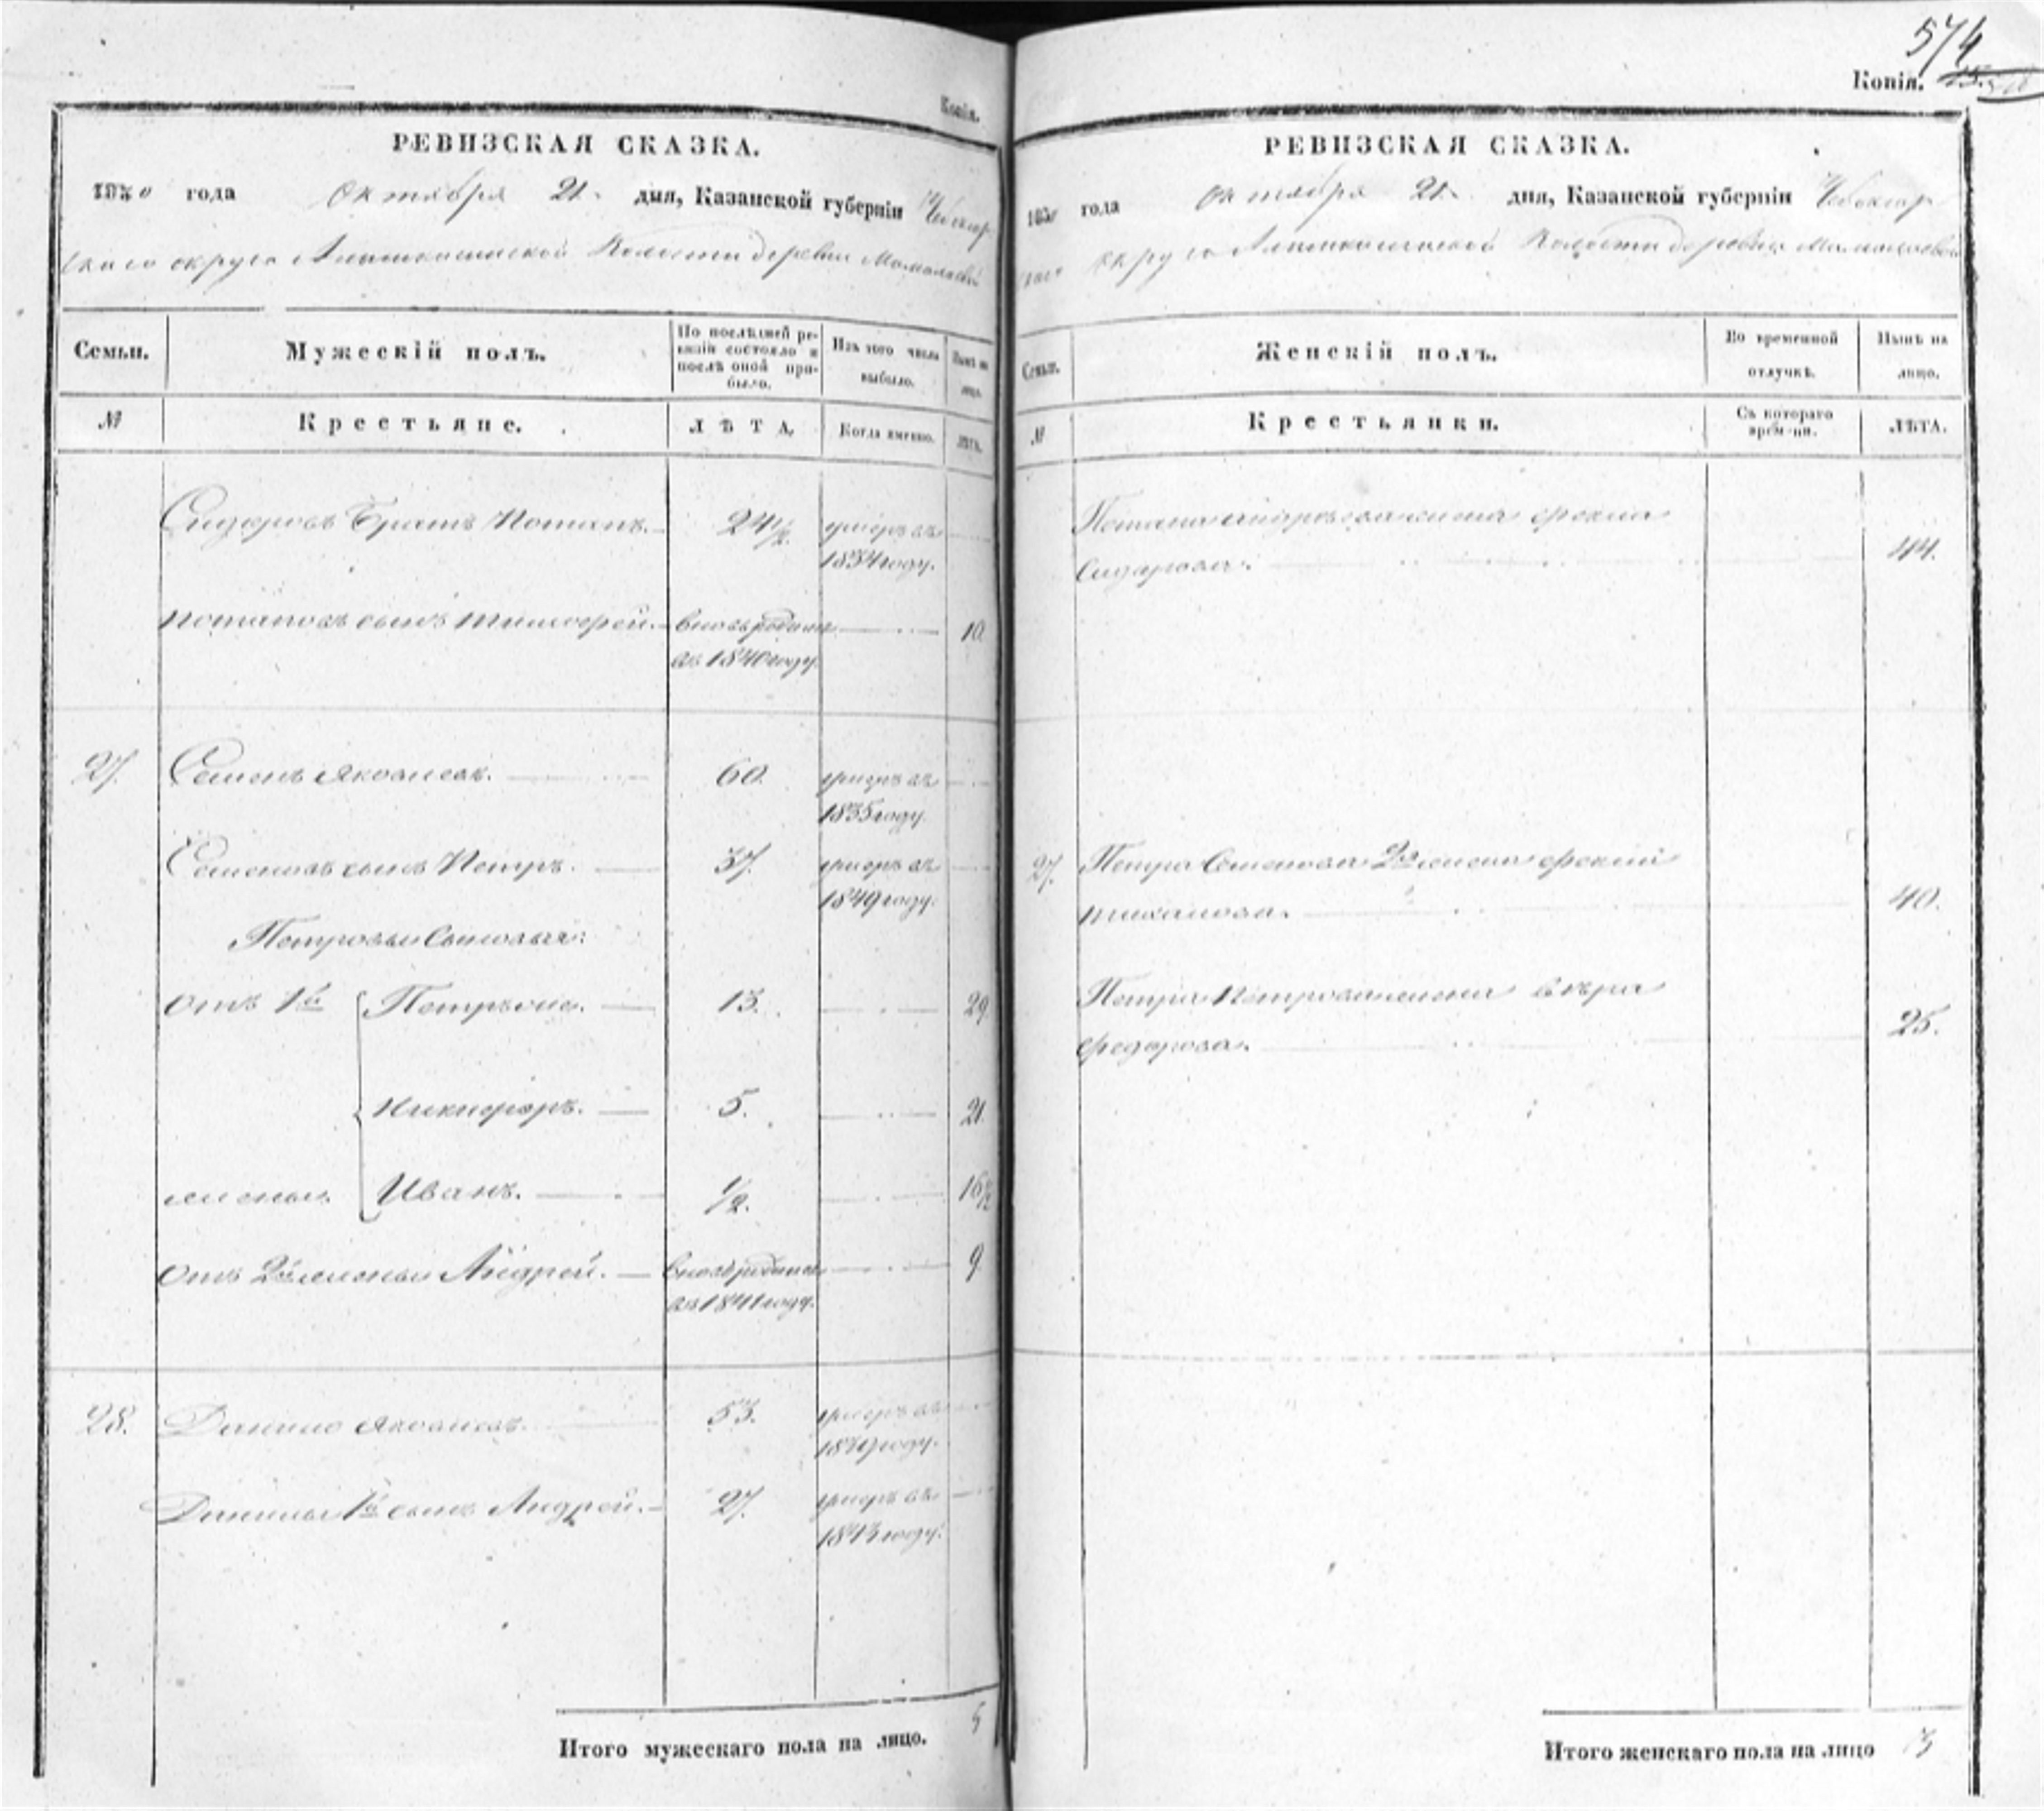 574
Копія.
Копія.
РЕВИЗСКАЯ СКАЗКА.
1850 года Октября 21. дня, Казанской губерніи Чебоксар
скаго округа волости деревни
Семьи.
Мужескій полъ.
По послѣдней ре-
визіи состояло и
послѣ оной при-
было.
Изъ того числа
выбыло.
Нынѣ на
лицо.
№
Крестьяне.
ЛѢТА.
Когда именно.
ЛѢТА.
Сидоровъ братъ Потапъ. 24 1/2 умеръ въ
1834 году.
Потаповъ сынъ Тимофей. вновь родился 10.
въ 1840 году.
27. Семенъ Яковлевъ. 60. умеръ въ
1835 году.
Семеновъ сынъ Петръ. 37. умеръ въ
1849 году.
Петровы сыновья:
отъ 1й Петръ 13. 29.
Никифоръ. 5. 21.
жены. Иванъ. 1/2. 16 1/2
отъ 2й жены Андрей. вновь родился 9.
въ 1841 году.
28. Данило Яковлевъ. 53. умеръ въ
году.
Данилы 1й сынъ Андрей. 27. умеръ въ
году.
Итого мужескаго пола на лицо. 5
РЕВИЗСКАЯ СКАЗКА.
1850 года Октября 21. дня, Казанской губерніи Чебоксар
скаго округа волости деревни
Семьи.
Женскій полъ.
Во временной
отлучкѣ.
Нынѣ на
лицо.
№
Крестьянки.
Съ котораго
времени.
ЛѢТА.
жена Фекла
Сидорова. 44.
27. Петра Семенова 2я жена
40.
Петра Петрова жена Вѣра
Федорова. 25.
Итого женскаго пола на лицо 3